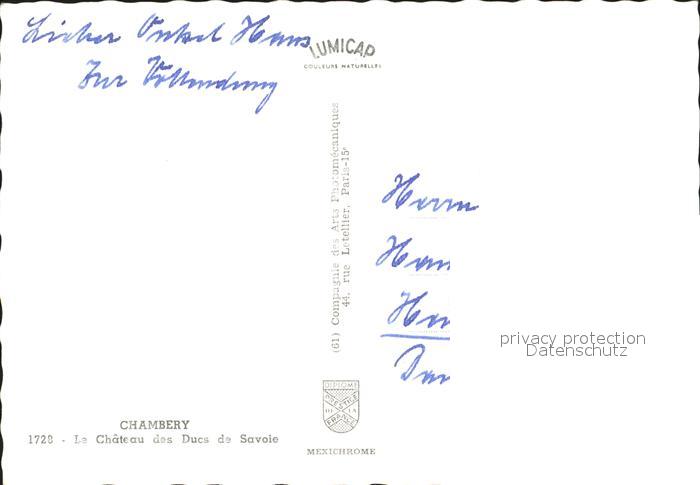 Lieber Onkel Hans
Zur Vollendung
LUMICAP
COULEURS NATURELLES
(61) Compagnie des Arts Photomécaniques
44, rue Letellier, Paris-15e
Herrn
Han
privacy protection
Datenschutz
DIPLOME
PRESTIGE
DE LA
FRANCE
CHAMBERY
1728 - Le Château des Ducs de Savoie
MEXICHROME